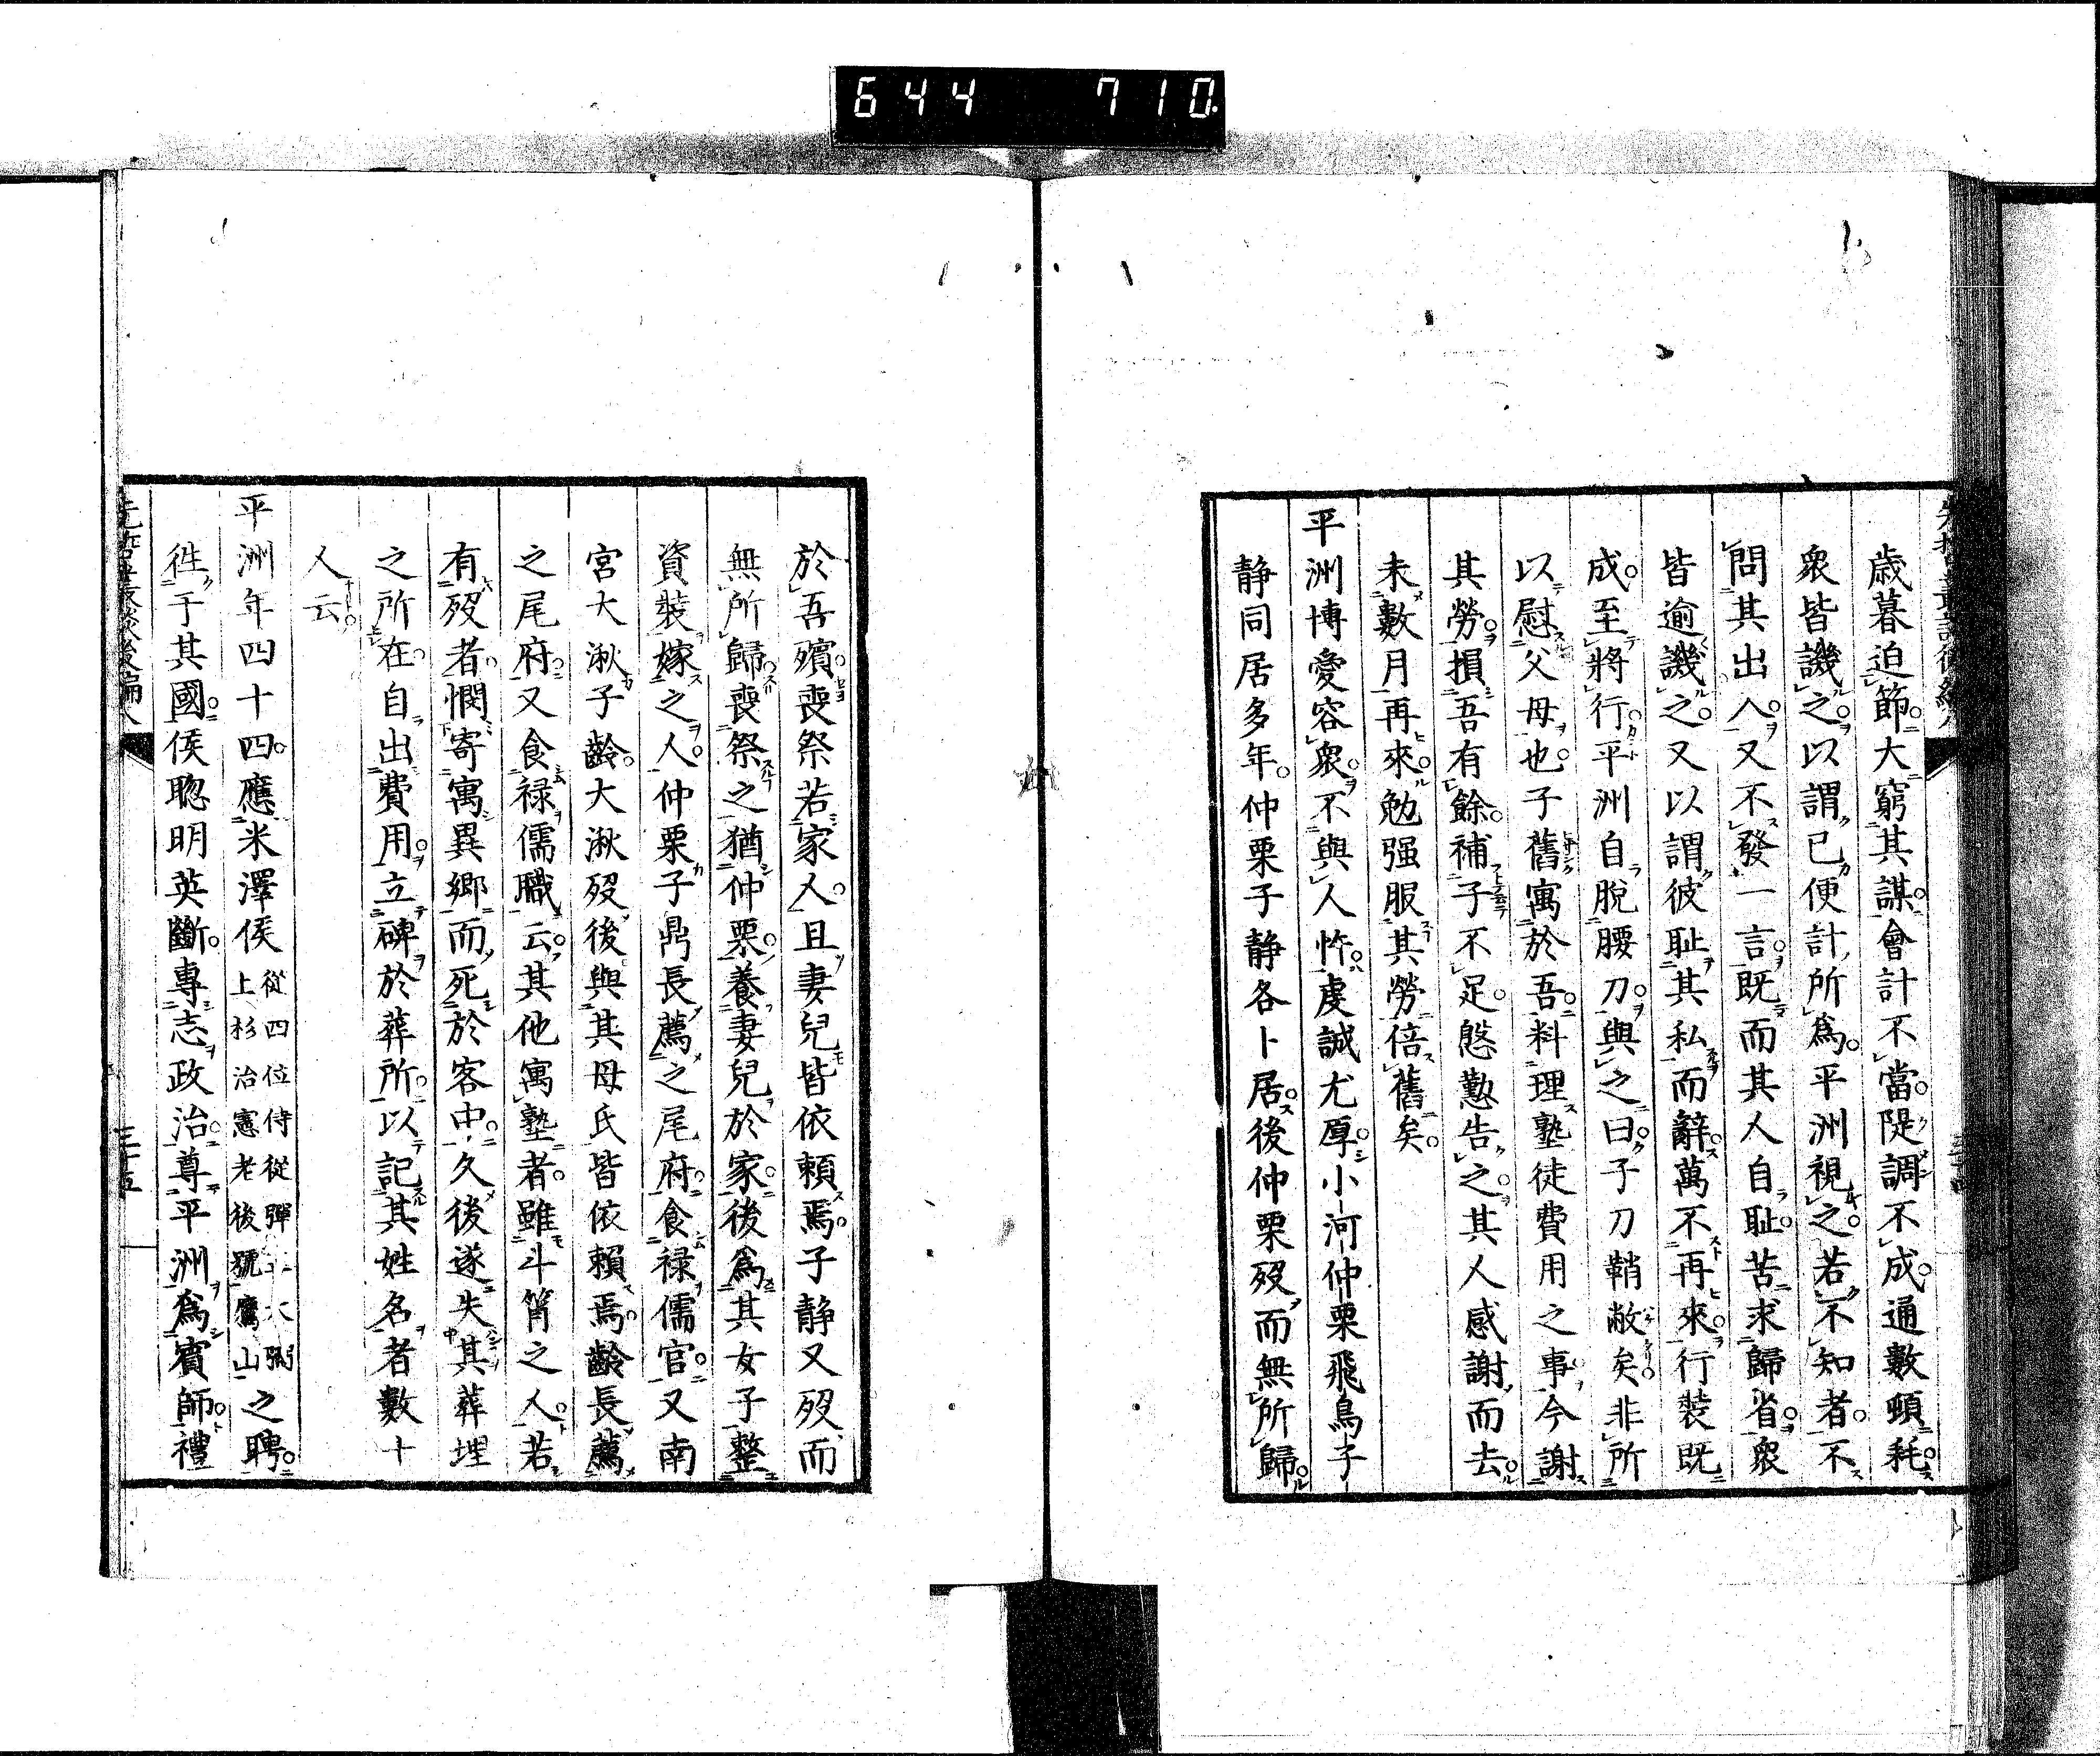 644 710
歳暮迫節大窮其謀會計不當隄調不成通數頓耗
衆皆譏之以謂已便計所爲平洲視之若不知者不
問其出入又不發一言既而其人自耻苦求歸省衆
皆逾譏之又以謂彼耻其私而辭萬不再來行裝既
成至將行平洲自脫腰刀與之曰子刀鞘敝矣非所
以慰父母也子舊寓於吾料理塾徒費用之事今謝
其勞損吾有餘補子不足慇懃告之其人感謝而去
未數月再來勉强服其勞倍舊矣
平洲博愛容衆不與人忤虔誠尤厚小河仲栗飛鳥子
静同居多年仲栗子静各卜居後仲栗歿而無所歸
於吾殯喪祭若家人且妻兒皆依頼焉子静又歿而
無所歸喪祭之猶仲栗養妻兒於家後爲其女子整
資裝嫁之人仲栗子鼎長薦之尾府食禄儒官又南
宮大湫子齡大湫歿後與其母氏皆依頼焉齡長薦
之尾府又食禄儒職云其他寓塾者雖斗筲之人若
有歿者憫寄寓異郷而死於客中久後遂失其葬埋
之所在自出費用立碑於葬所以記其姓名者數十
人云
平洲年四十四應米澤侯從四位侍從彈正大弼上杉治憲老後號鷹山之聘
徃于其國侯聰明英斷專志政治尊平洲爲賓師禮
先哲叢談後編八 三十五